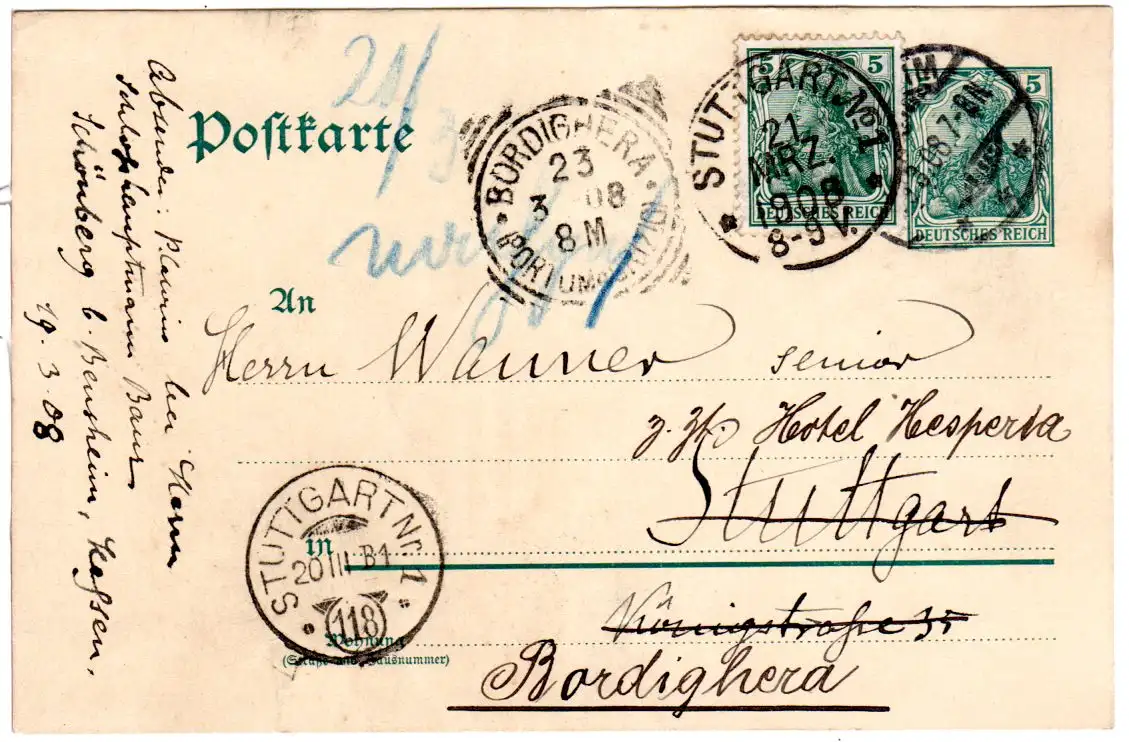 Postkarte
21/3
5 5
DEUTSCHES REICH
5
DEUTSCHES REICH
STUTTGART No 1
21
MRZ.
1908
8-9 V.
7-8 N
BORDIGHERA
23
3 08
8 M
PORTO MAURIZIO
An
Herrn Wanner senior
z. Zt. Hotel Hesperia
Stuttgart
in
Königstrasse 35
Wohnung
(Straße und Hausnummer)
Bordighera
STUTTGART Nr. 1
20 III B1
118
Absender: bei Herrn
Schloßhauptmann Baur
Schönberg b. Bensheim, Hessen.
19.3.08